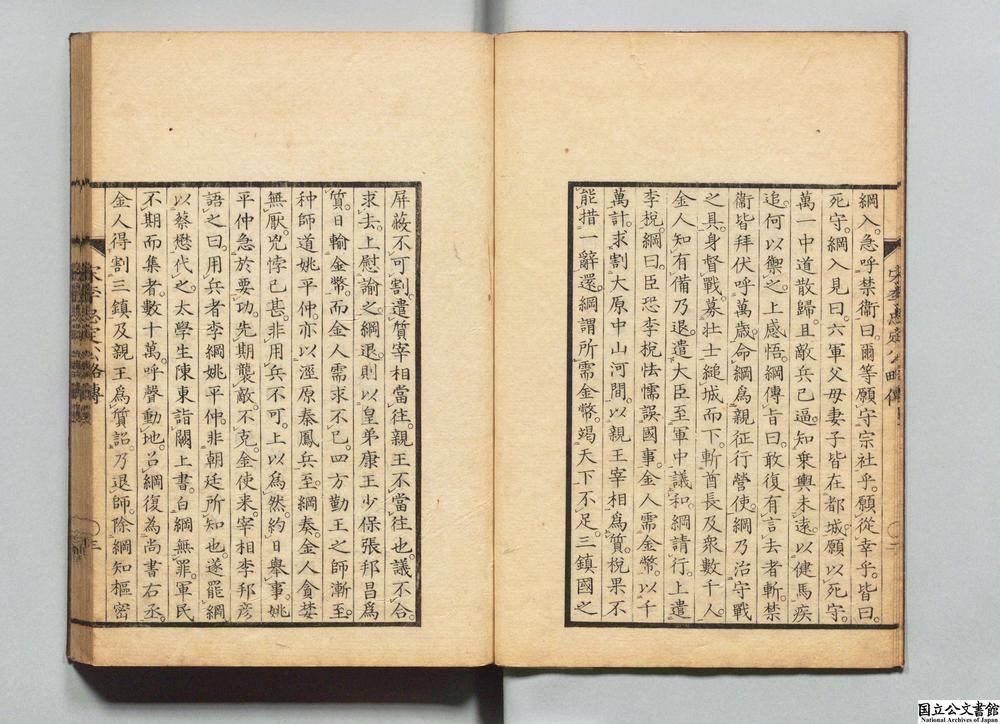 綱入。急呼禁衛曰。爾等願守宗社乎。願從幸乎。皆曰。
死守。綱入見曰。六軍父母妻子皆在都城。願以死守。
萬一中道散歸。且敵兵已逼。知乗輿未遠。以健馬疾
追。何以禦之。上感悟。綱傳旨曰。敢復有言去者斬。禁
衛皆拜伏呼萬歳。命綱爲親征行營使。綱乃治守戰
之具。身督戰。募壮士縋城而下。斬酋長及衆數千人。
金人知有備乃退。遣大臣至軍中議和。綱請行。上遣
李梲。綱曰。臣恐李梲怯懦誤國事。金人需金幣。以千
萬計。求割大原中山河間。以親王宰相爲質。梲果不
能措一辭還。綱謂所需金幣。竭天下不足。三鎮國之
屏蔽不可割。遣質宰相當往。親王不當往也。議不合。
求去。上慰諭之。綱退。則以皇弟康王少保張邦昌爲
質。日輸金幣。而金人需求不已。四方勤王之師漸至。
种師道姚平仲。亦以涇原秦鳳兵至。綱奏。金人貪婪
無厭。兇悖已甚。非用兵不可。上以爲然。約日舉事。姚
平仲急於要功。先期襲敵。不克。金使来。宰相李邦彦
語之曰。用兵者李綱姚平仲。非朝廷所知也。遂罷綱
以蔡懋代之。太學生陳東詣闕上書。白綱無罪。軍民
不期而集者。數十萬。呼聲動地。召綱復為尚書右丞。
金人得割三鎮及親王爲質詔。乃退師。除綱知樞密
宋李忠定公略傳
三
国立公文書館
National Archives of Japan